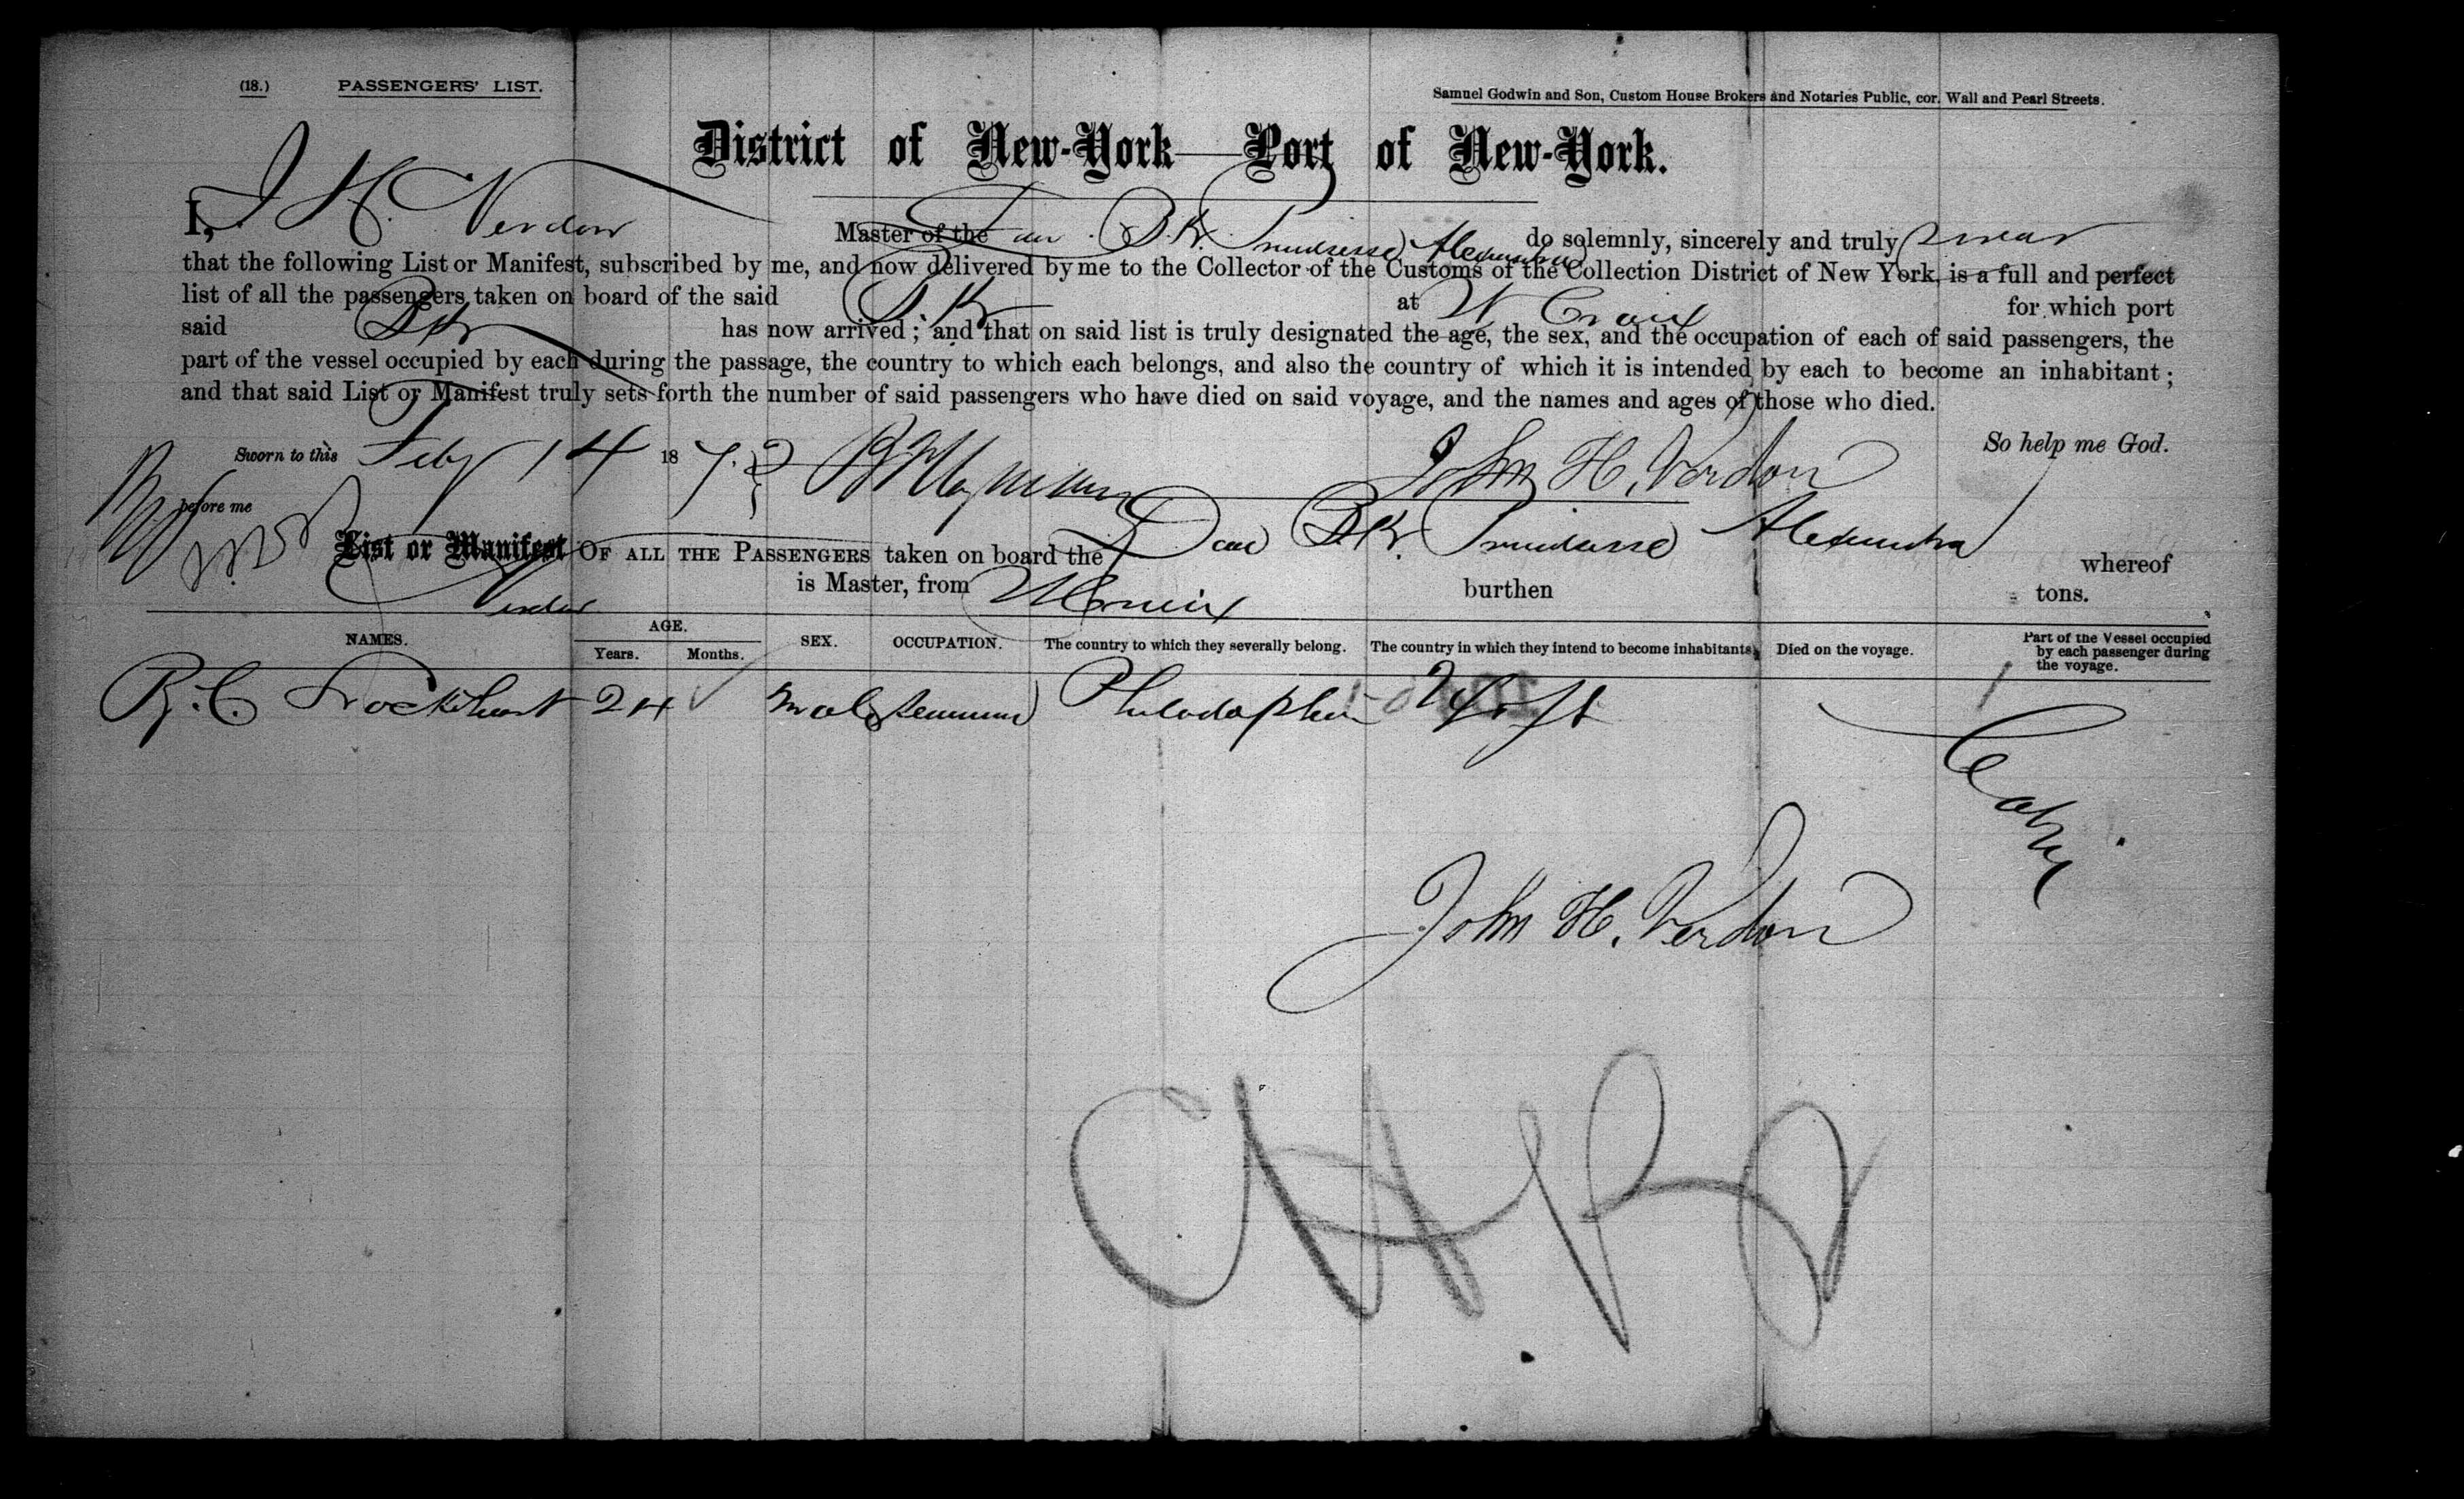 (18.) PASSENGERS' LIST.
Samuel Godwin and Son, Custom House Brokers and Notaries Public, cor. Wall and Pearl Streets.
District of New-York—Port of New-York.
I, J H. Verdon Master of the Dan B.K. Prindsesse Alexandra do solemnly, sincerely and truly swear
that the following List or Manifest, subscribed by me, and now delivered by me to the Collector of the Customs of the Collection District of New York, is a full and perfect
list of all the passengers taken on board of the said BK at St Croix for which port
said BK has now arrived; and that on said list is truly designated the age, the sex, and the occupation of each of said passengers, the
part of the vessel occupied by each during the passage, the country to which each belongs, and also the country of which it is intended by each to become an inhabitant;
and that said List or Manifest truly sets forth the number of said passengers who have died on said voyage, and the names and ages of those who died.
Sworn to this Feby 14 187 John H. Verdon So help me God.
before me
List or Manifest OF ALL THE PASSENGERS taken on board the Dan BK. Prindsesse Alexandra whereof
Verdon is Master, from St Croix burthen tons.
NAMES. AGE. Years. Months. SEX. OCCUPATION. The country to which they severally belong. The country in which they intend to become inhabitants. Died on the voyage. Part of the Vessel occupied by each passenger during the voyage.
R. C. 24 male seaman Philadelphia Cabin
John H. Verdon